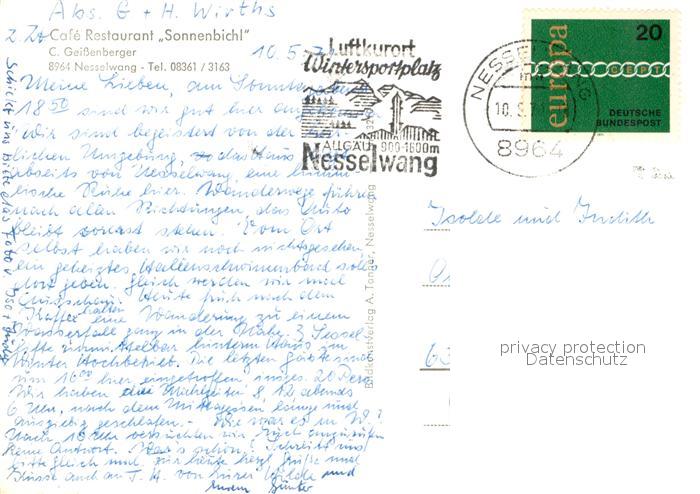 Abs. G + H. Wirths
z. Zt Café Restaurant „Sonnenbichl"
C. Geißenberger
8964 Nesselwang - Tel. 08361 / 3163
10.5.71
Meine Lieben, am Sonntag
18⁵⁰ sind wir gut hier
Wir sind begeistert von der
lichen Umgebung, das Haus
abseits von Nesselwang, eine
lische Ruhe hier. Wanderwege führen
nach allen Richtungen, das Auto
bleibt vorerst stehen. Vom Ort
selbst haben wir noch nichts gesehen,
ein geheiztes Hallenschwimmbad soll es
dort geben. Gleich werden wir mal
Heute früh nach dem
Kaffee eine Wanderung zu einem
Wasserfall ganz in der Nähe. 3 Sessel-
lifte unmittelbar hinterm Haus im
Winter Hochbetrieb. Die letzten Gäste sind
um 16⁰⁰ hier eingetroffen, insges. 20 Pers.
Wir haben die Mahlzeiten 8, 12 abends
6 Uhr, nach dem Mittagessen lange und
ausgiebig geschlafen. - Wie war es in
Nach 18 Uhr versuchten wir Euch anzurufen
keine Antwort. Schreibt uns
bitte gleich und für heute herzl. Grüße und
Küsse auch an T. H. von Eurer Hilde und
Eurem Günter
Schickt uns bitte das
Luftkurort
Wintersportplatz
ALLGÄU 900-1600m
Nesselwang
NESSELWANG
10.5.71
8964
europa
20
CEPT
DEUTSCHE
BUNDESPOST
Bildkunstverlag A. Tanner, Nesselwang
Isolde und Judith
privacy protection
Datenschutz